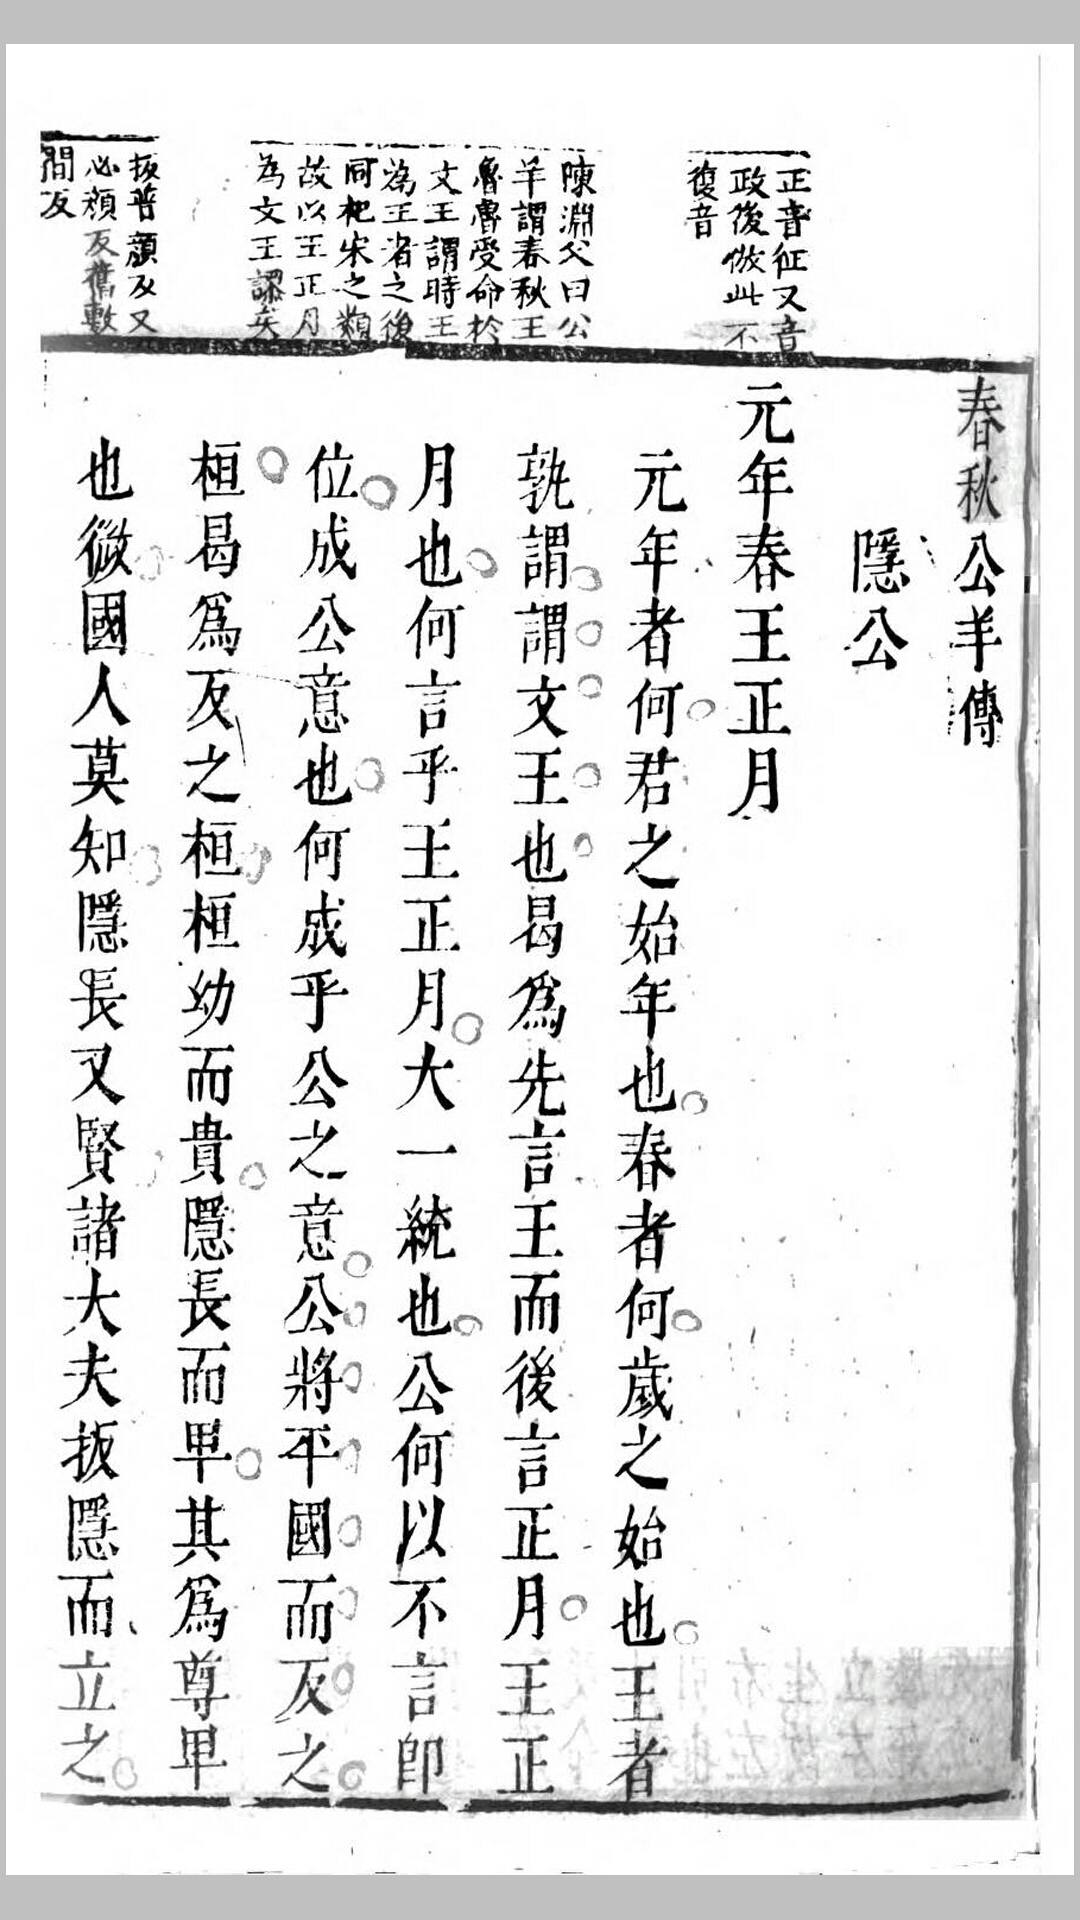 春秋公羊傳
隱公
元年春王正月
元年者何君之始年也春者何歲之始也王者
孰謂謂文王也曷爲先言王而後言正月王正
月也何言乎王正月大一統也公何以不言即
位成公意也何成乎公之意公將平國而反之
桓曷爲反之桓桓幼而貴隱長而卑其爲尊卑
也微國人莫知隱長又賢諸大夫扳隱而立之
正音征又音
政後倣此不
復音
陳淵父曰公
羊謂春秋王
魯魯受命於
文王謂時王
為王者之後
同杞宋之類
故以王正月
為文王謬矣
扳普顏反又
必顏反舊敷
間反